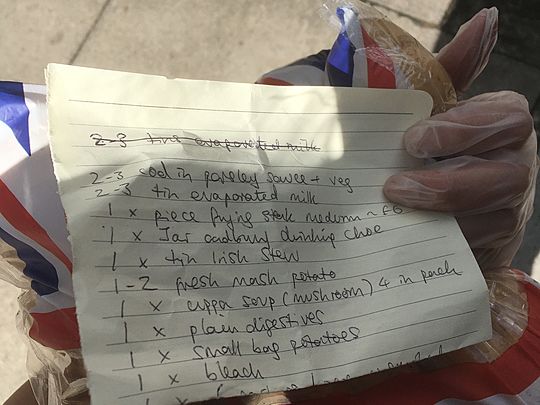 2-3 tins evaporated milk
2-3 cod in parsley sauce + veg
2-3 tin evaporated milk
1 x piece frying steak medium ~ £6
1 x Jar cadbury drinking choc
1 x tin Irish stew
1-2 fresh mash potato
1 x cuppa soup (mushroom) 4 in pack
1 x plain digestives
1 x small bag potatoes
1 x bleach
1 x